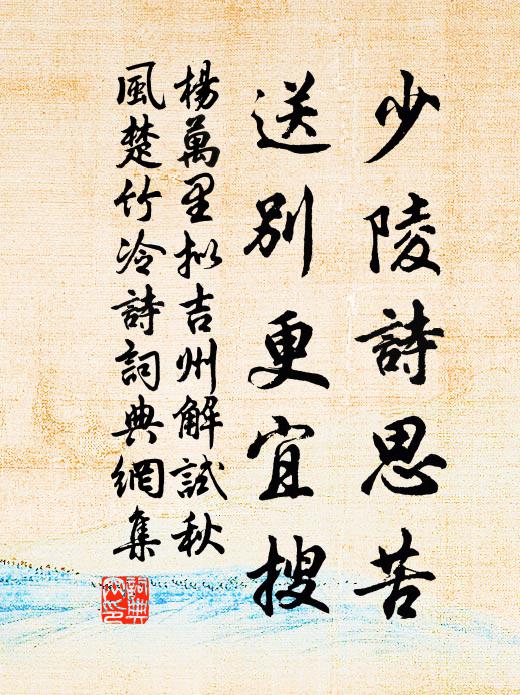 少陵詩思苦
送別更宜搜
楊萬里拟吉州解試秋
風楚竹冷詩詞典網集